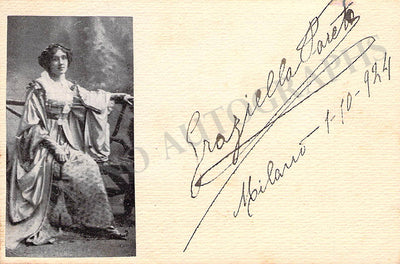 Graziella Pareto
Milano 1-10-924
AUTOGRAPHS